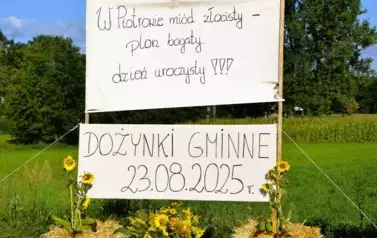 W Piotrowie miód złocisty -
plon bogaty,
dzień uroczysty !!!
DOŻYNKI GMINNE
23.08.2025 r.